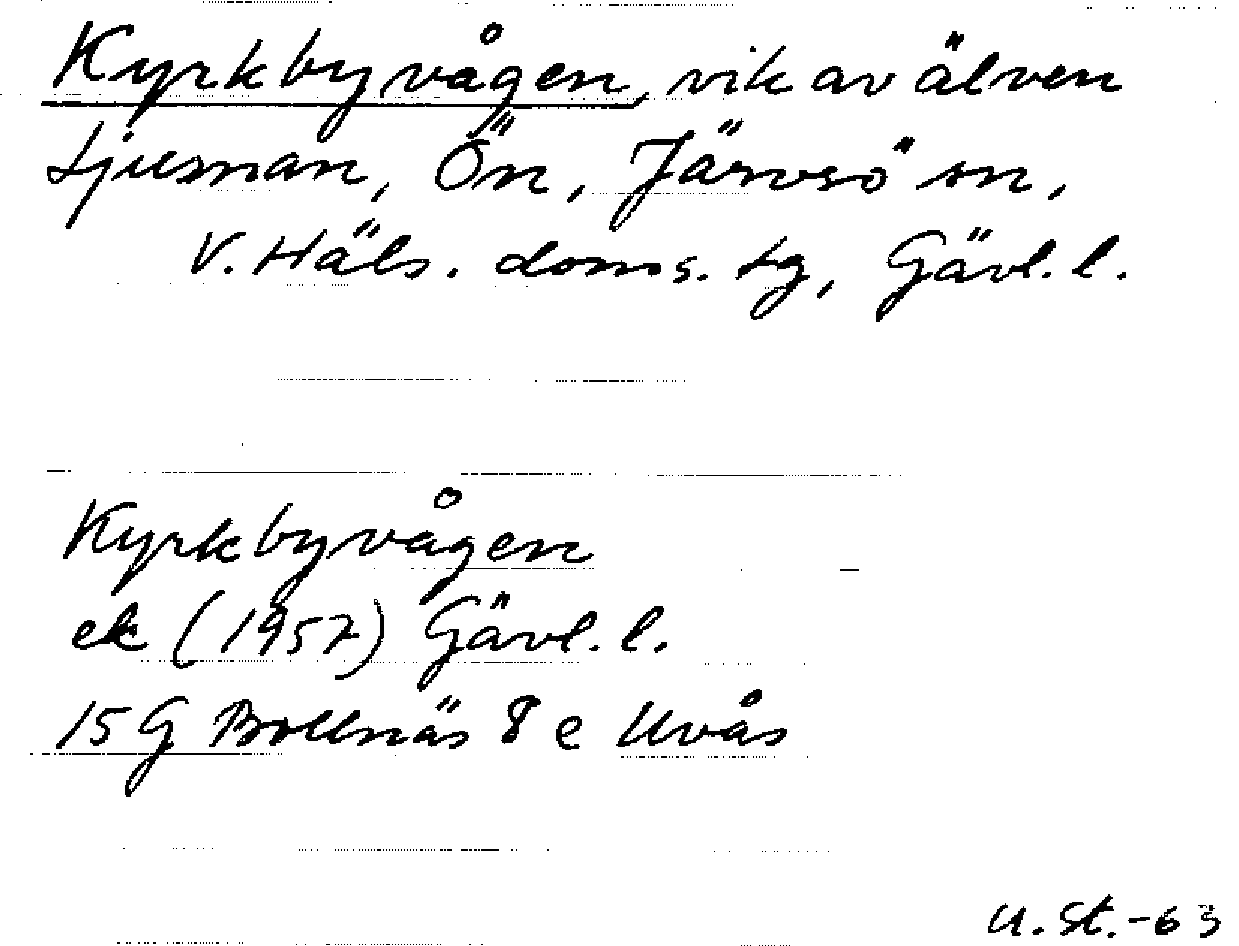 Kyrkbyvågen, vik av älven
Ljusnan, Ön, Järvsö sn,
V. Häls. doms. tg, Gävl. l.
Kyrkbyvågen
ek (1957) Gävl. l.
15 G Bollnäs 8 e Uvås
U. St. -63